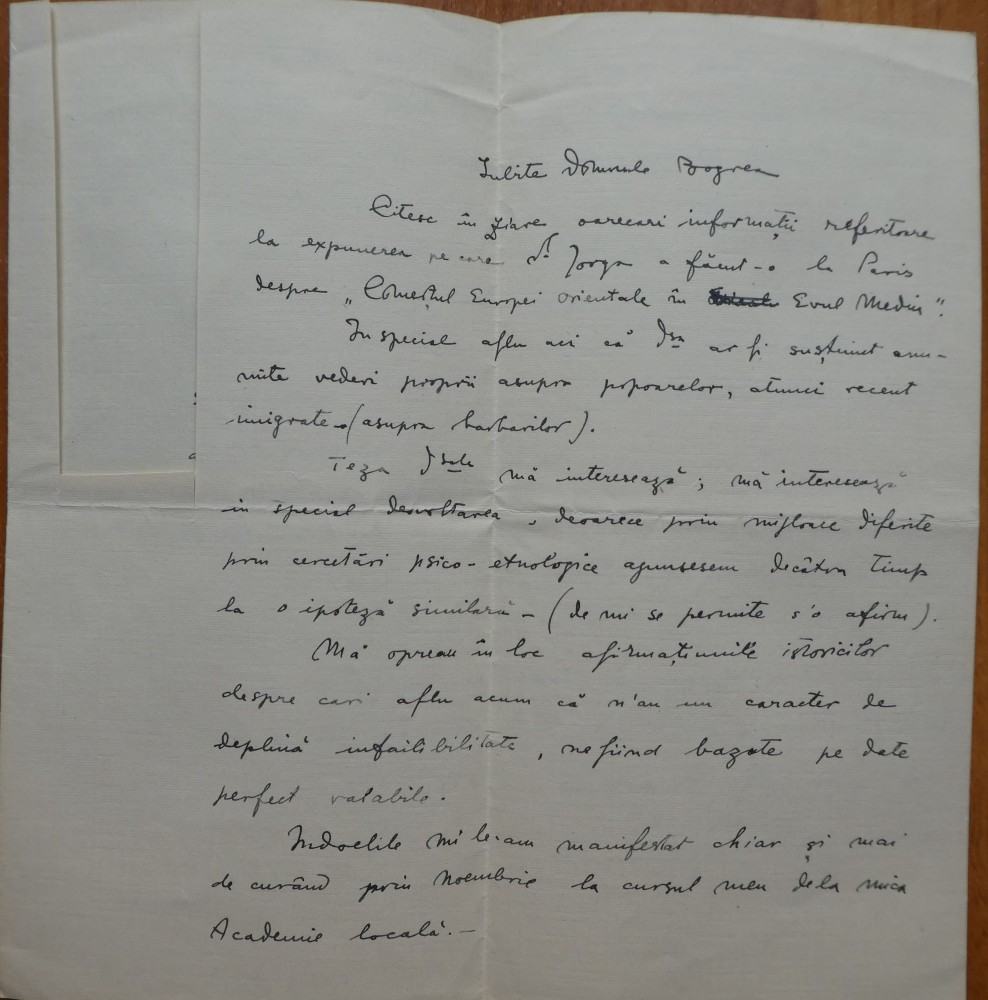 Iubite Domnule Bogrea
Citesc în ziare oarecari informații referitoare
la expunerea pe care dl Iorga a făcut-o la Paris
despre „Comerțul Europei orientale în Evul Mediu".
In special aflu aci că Dsa ar fi susținut anu-
mite vederi proprii asupra popoarelor, atunci recent
imigrate - (asupra barbarilor).
Teza Dsale mă interesează; mă interesează
in special desvoltarea, deoarece prin mijloace diferite
prin cercetări psico-etnologice ajunsesem decâtva timp
la o ipoteză similară - (de mi se permite s'o afirm).
Mă opreau în loc afirmațiunile istoricilor
despre cari aflu acum că n'au un caracter de
deplină infailibilitate, nefiind bazate pe date
perfect valabile.
Indoelile mi le-am manifestat chiar și mai
de curând prin Noembrie la cursul meu dela mica
Academie locală. -